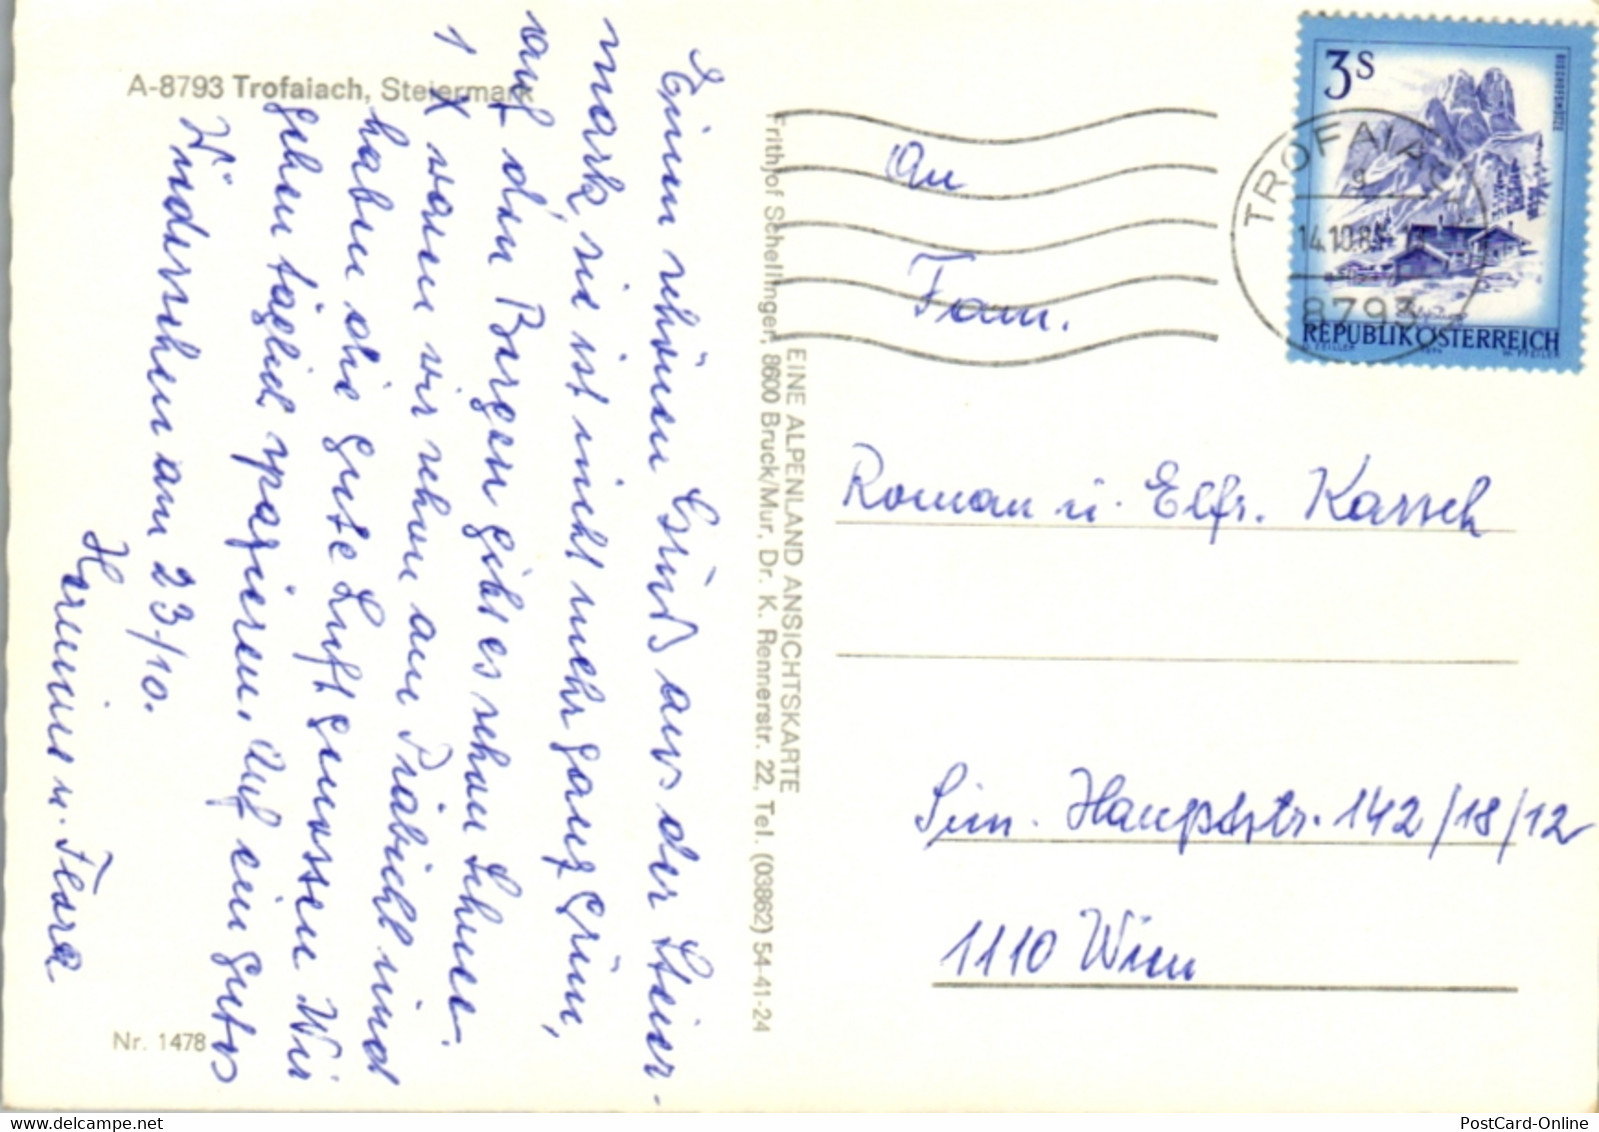 A-8793 Trofaiach, Steiermark
Einen schönen Gruß aus der Steier-
mark, sie ist nicht mehr ganz grün,
auf den Bergen gibt es schon Schnee.
1 X waren wir schon am Präbichl und
haben die gute Luft genossen Wir
gehen täglich spazieren. Auf ein gutes
Wiedersehen am 23/10.
Hermine u. Flora
Nr. 1478
Frithjof Schellinger, 8600 Bruck/Mur, Dr. K. Rennerstr. 22, Tel. (03862) 54-41-24
EINE ALPENLAND ANSICHTSKARTE
3S
BISCHOFSMÜTZE
REPUBLIK ÖSTERREICH
TROFAIACH
14.10.8
8793
An
Fam.
Roman u. Elfr. Kassech
Sim. Hauptstr. 142/18/12
1110 Wien
PostCard-Online